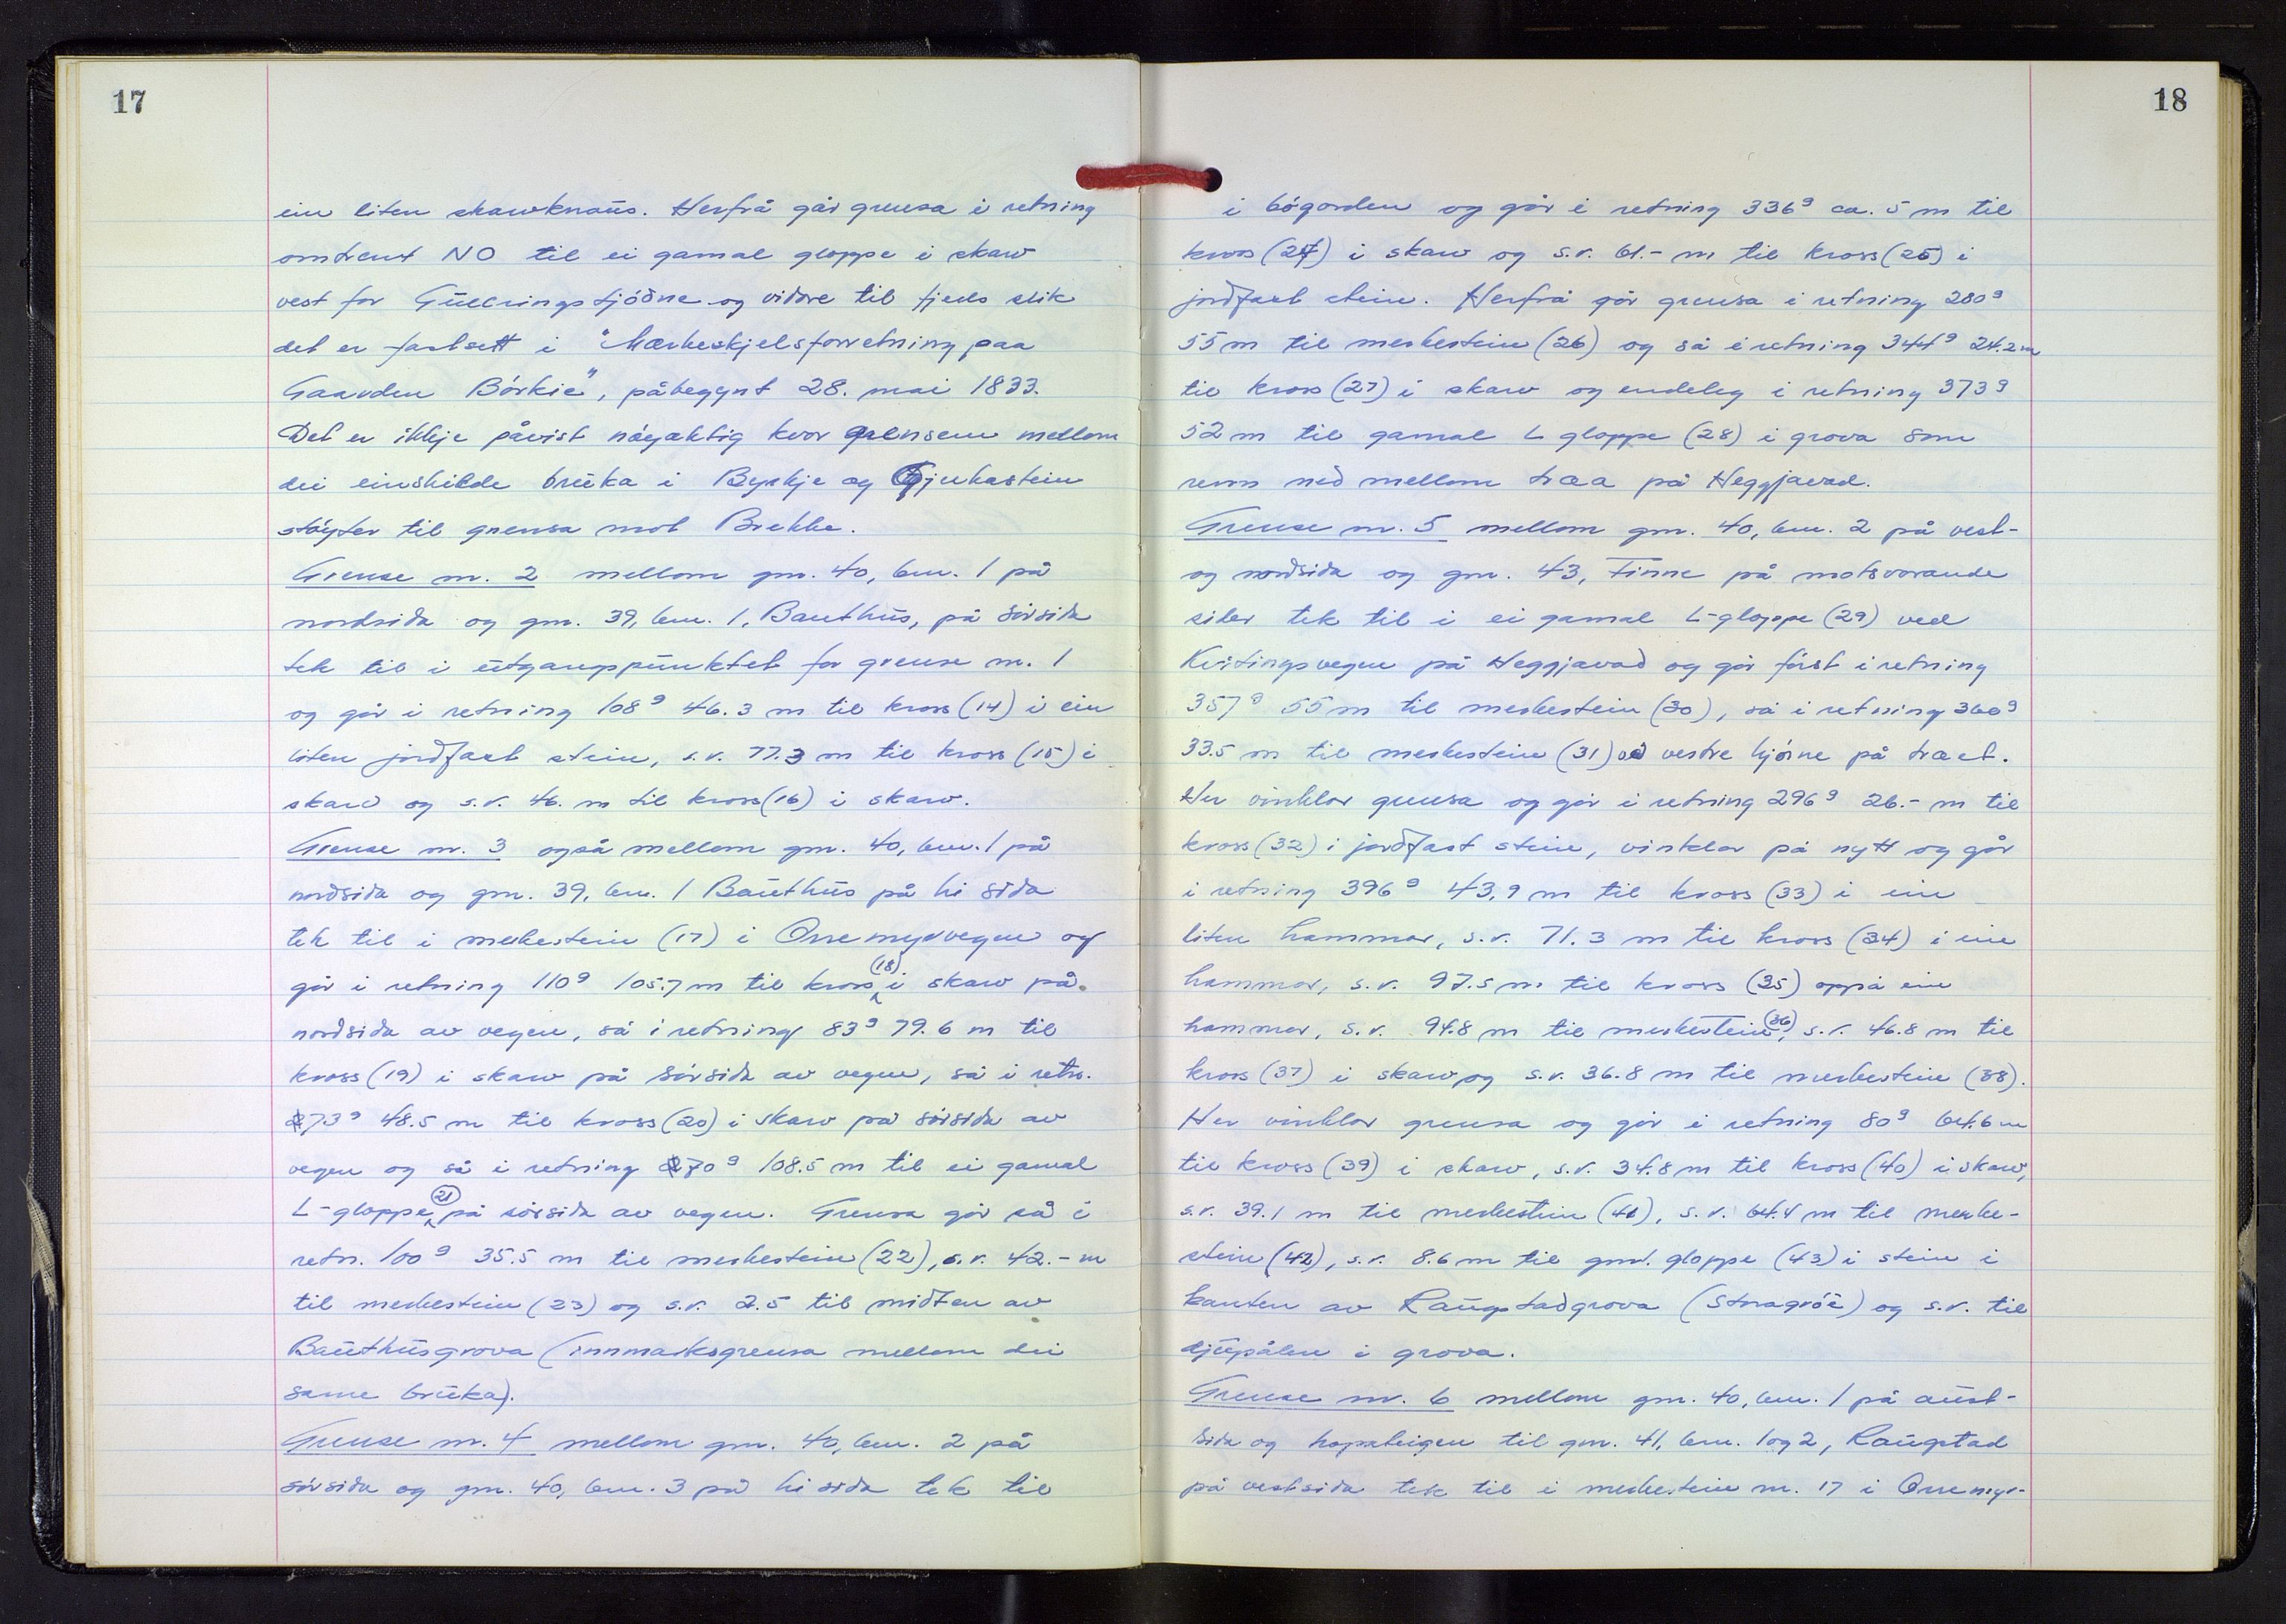 17
ein liten skarvknaus. Herfrå går grensa i retning
omtrent NO til ei gamal gloppe i skarv
vest for Gullringstjödne og vidare til fjells slik
det er fastsett i "Mærkeskjelsforretning paa
Gaarden Börkie", påbegynt 28. mai 1833.
Det er ikkje påvist nöyaktig kvor grensene mellom
dei einskilde bruka i Byrkje og Gjukastein
stöyter til grensa mot Brekke.
Grense nr. 2 mellom gnr. 40, bnr. 1 på
nordsida og gnr. 39, bnr. 1, Bauthus, på sörsida
tek til i utgangspunktet for grense nr. 1
og går i retning 108g 46.3 m til kross (14) i ein
liten jordfast stein, s.v. 77.3 m til kross (15) i
skarv og s.v. 46. m til kross (16) i skarv.
Grense nr. 3 også mellom gnr. 40, bnr. 1 på
nordsida og gnr. 39, bnr. 1 Bauthus på hi sida
tek til i merkestein (17) i Orremyrvegen og
går i retning 110g 105.7 m til kross (18) i skarv på
nordsida av vegen, så i retning 83g 79.6 m til
kross (19) i skarv på sörsida av vegen, så i retn.
73g 48.5 m til kross (20) i skarv på sörsida av
vegen og så i retning 70g 108.5 m til ei gamal
L-gloppe (21) på sörsida av vegen. Grensa går så i
retn. 100g 35.5 m til merkestein (22), s.v. 42.- m
til merkestein (23) og s.v. 2.5 til midten av
Bauthusgrova (innmarksgrensa mellom dei
same bruka).
Grense nr. 4 mellom gnr. 40, bnr. 2 på
sörsida og gnr. 40, bnr. 3 på hi sida tek til
18
i bögarden og går i retning 336g ca. 5 m til
kross (24) i skarv og s.v. 61.- m til kross (25) i
jordfast stein. Herfrå går grensa i retning 280g
55 m til merkestein (26) og så i retning 344g 24.2 m
til kross (27) i skarv og endeleg i retning 373g
52 m til gamal L gloppe (28) i grova som
renn ned mellom træa på Heggjavad.
Grense nr. 5 mellom gnr. 40, bnr. 2 på vest-
og nordsida og gnr. 43, Finne på motsvarande
sider tek til i ei gamal L-gloppe (29) ved
Kvitingsvegen på Heggjavad og går först i retning
357g 55 m til merkestein (30), så i retning 360g
33.5 m til merkestein (31) ved vestre hjörne på træet.
Her vinklar grensa og går i retning 296g 26.- m til
kross (32) i jordfast stein, vinklar på nytt og går
i retning 396g 43,9 m til kross (33) i ein
liten hammar, s.v. 71.3 m til kross (34) i ein
hammar, s.v. 97.5 m til kross (35) oppå ein
hammar, s.v. 94.8 m til merkestein (36), s.v. 46.8 m til
kross (37) i skarv og s.v. 36.8 m til merkestein (38).
Her vinklar grensa og går i retning 80g 64.6 m
til kross (39) i skarv, s.v. 34.8 m til kross (40) i skarv,
s.v. 39.1 m til merkestein (41), s.v. 64.4 m til merke-
stein (42), s.v. 8.6 m til gml. gloppe (43) i stein i
kanten av Raugstadgrova (Storagröe) og s.v. til
djupålen i grova.
Grense nr. 6 mellom gnr. 40, bnr. 1 på aust-
sida og hopateigen til gnr. 41, bnr. 1 og 2, Raugstad
på vestsida tek til i merkestein nr. 17 i Orremyr-